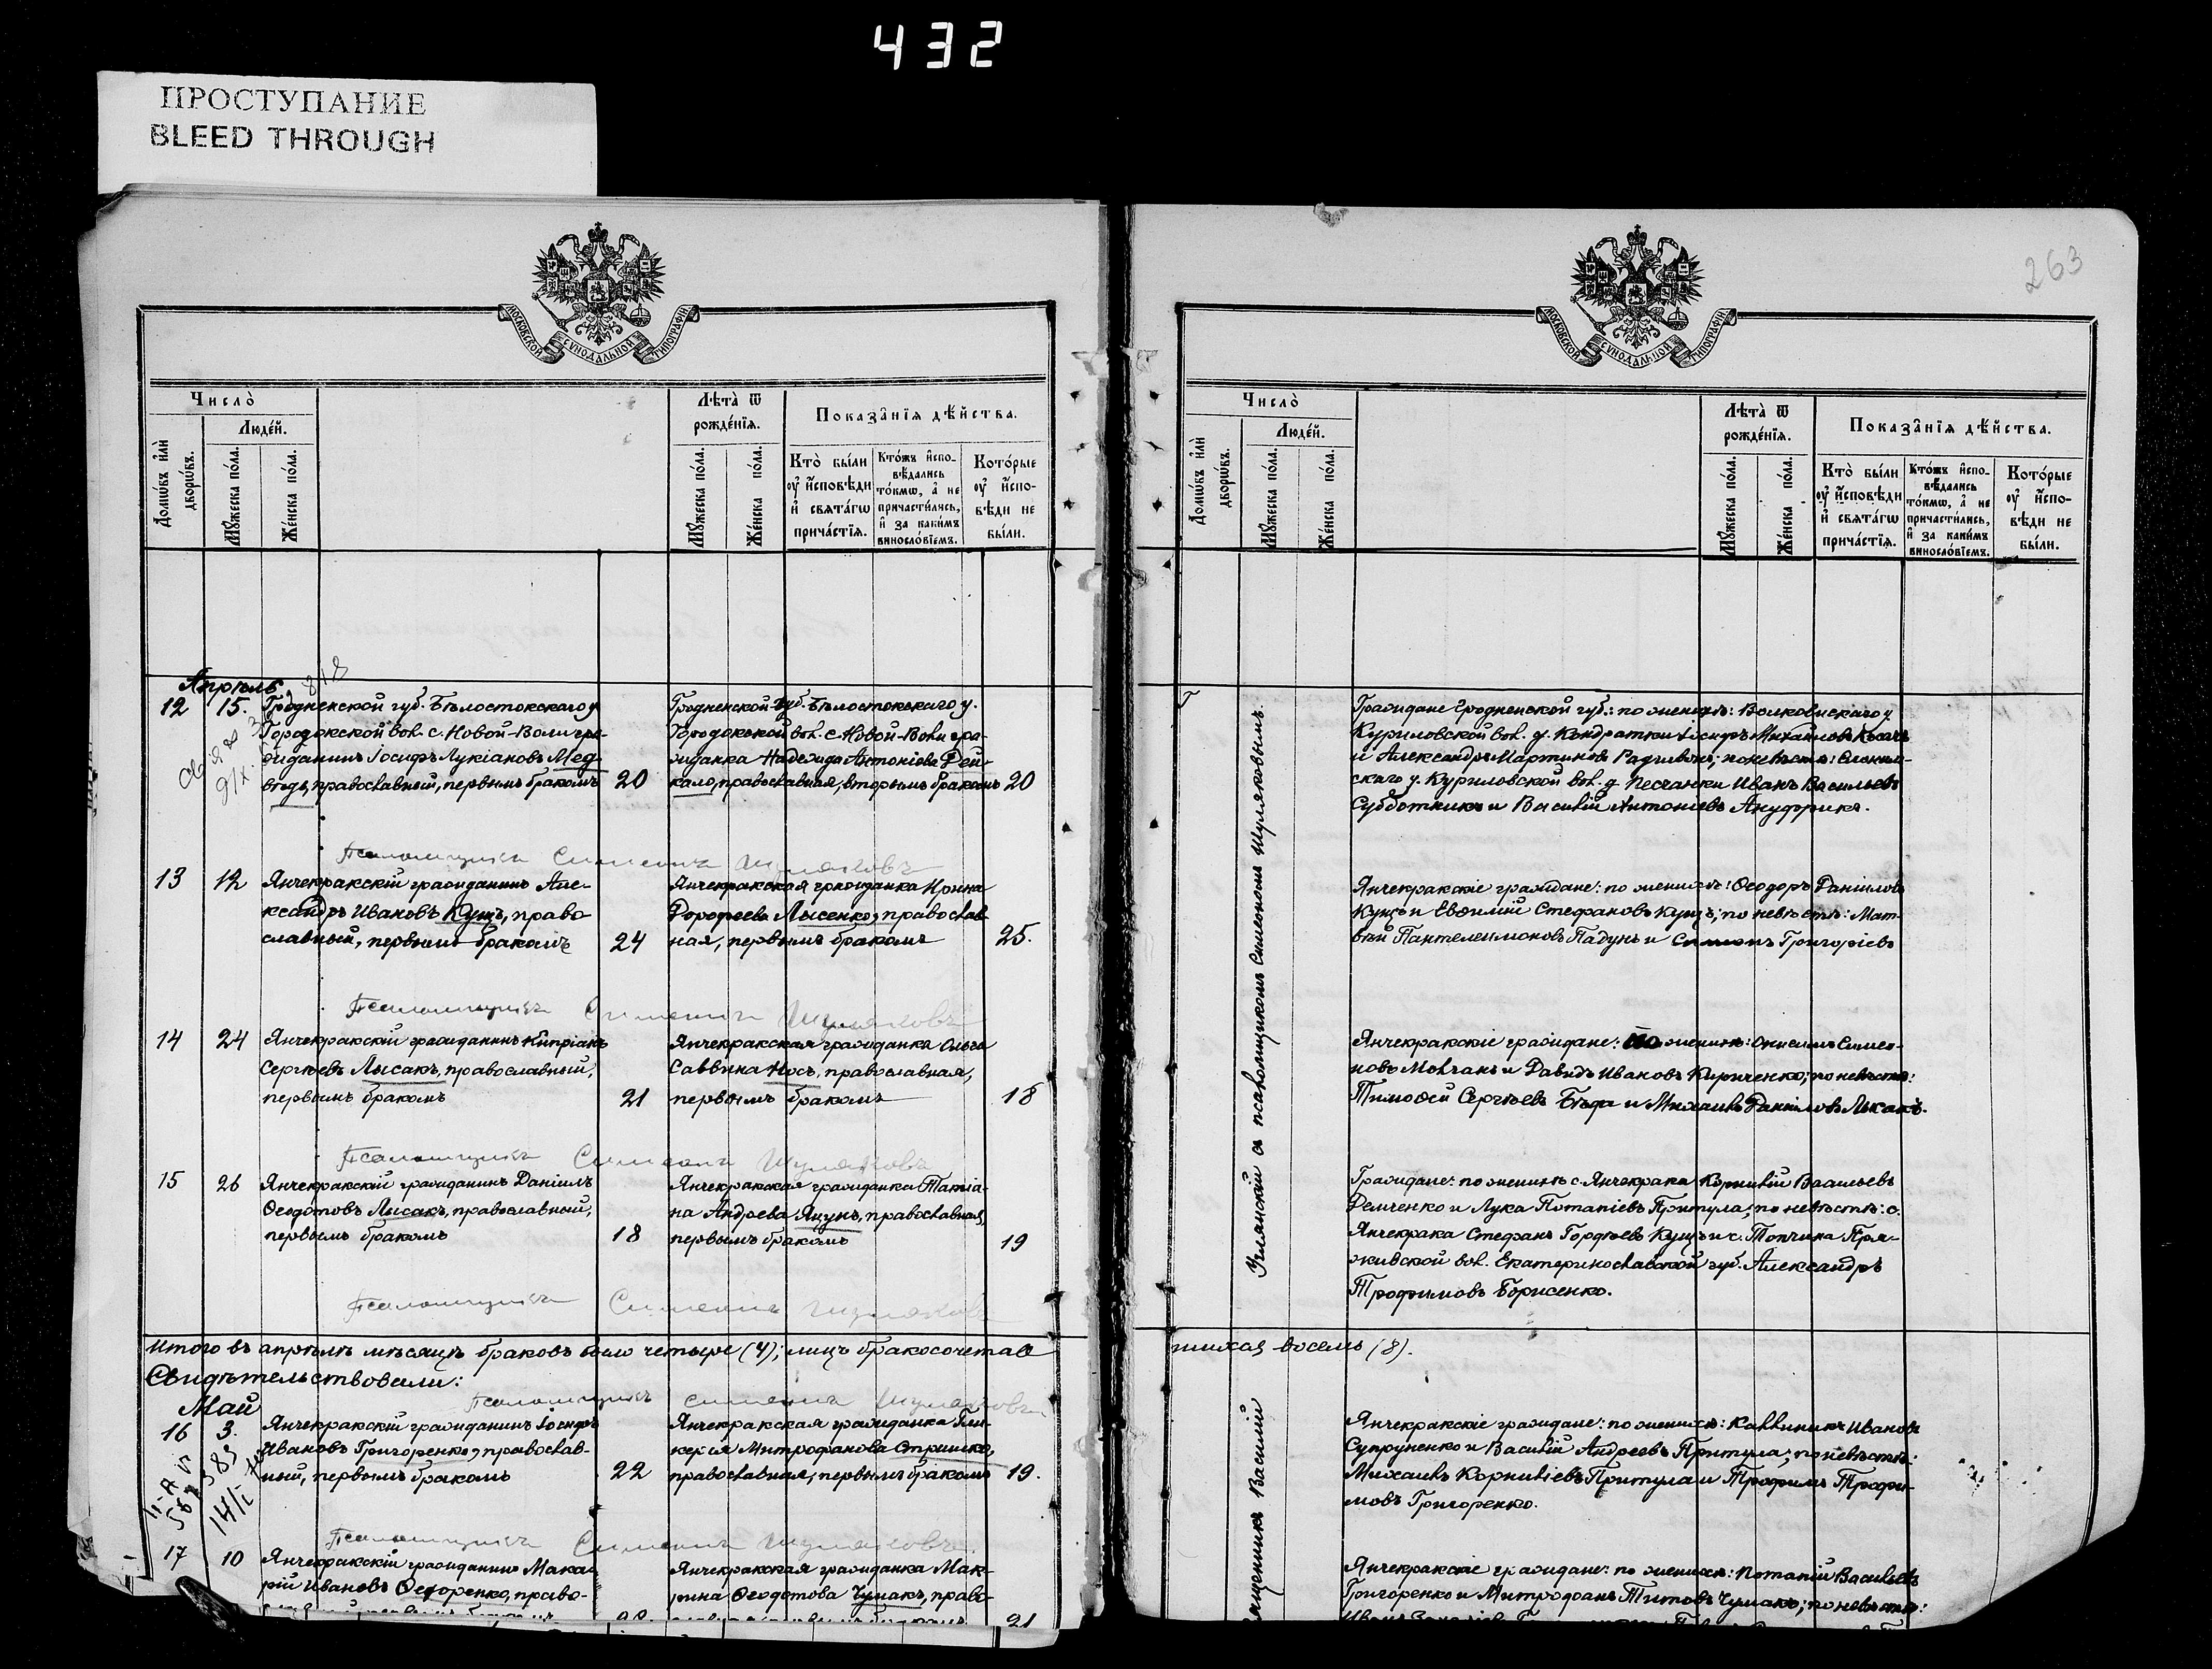 432
ПРОСТУПАНИЕ
BLEED THROUGH
263
МОСКОВСКОЙ СѴНОДАЛЬНОЙ ТИПОГРАФІИ
Число̀
Людéй.
Домѡ́въ и҆лѝ дворѡ́въ.
Мꙋ́жеска по́ла.
Же́нска по́ла.
Лѣта̀ ѿ рожде́нїѧ.
Мꙋ́жеска по́ла.
Же́нска по́ла.
Показа̑нїѧ дѣ́йства.
Кто̀ бы́ли оу҆ и҆́сповѣди и҆ свѧта́гѡ прича́стїѧ.
Кто́жъ и҆спо-
вѣ́дались
то́кмѡ, а҆ не
причасти́лись,
и҆ за каки́мъ
винослóвїемъ.
Кото́рые
оу҆ и҆спо-
вѣди не
бы́ли.
Апрѣль
12 15. Гродненской губ. Бѣлостокскаго у
Городокской вол. с. Новой-Воли гра-
жданинъ Іосифъ Лукіановъ Мед-
вѣдь, православный, первымъ бракомъ 20
Гродненской губ. Бѣлостокскаго у.
Городокской вол. с. Новой-Воли гра-
жданка Надежда Антоніева Дей-
кало, православная, вторымъ бракомъ 20
Псаломщикъ Симеонъ Шуляковъ
13 12 Янчекракскій гражданинъ Але-
ксандръ Ивановъ Кущъ, право
славный, первымъ бракомъ 24
Янчекракская гражданка Ирина
Дорофеева Лысенко, православ
ная, первымъ бракомъ 25.
Псаломщикъ Симеонъ Шуляковъ
14 24 Янчекракскій гражданинъ Кипріанъ
Сергѣевъ Лысакъ, православный,
первымъ бракомъ 21
Янчекракская гражданка Ольга
Саввина Носъ, православная,
первымъ бракомъ 18
Псаломщикъ Симеонъ Шуляковъ
15 26 Янчекракскій гражданинъ Даніилъ
Ѳеодотовъ Лысакъ, православный,
первымъ бракомъ 18
Янчекракская гражданка Татіа-
на Андреева Яцунъ, православная,
первымъ бракомъ 19
Псаломщикъ Симеонъ Шуляковъ
Итого въ апрѣлѣ мѣсяцѣ браковъ было четыре (4); лицъ бракосочетав
Свидѣтельствовали:
Псаломщикъ Симеонъ Шуляковъ
Май
16 3. Янчекракскій гражданинъ Іосифъ
Ивановъ Григоренко, православ-
ный, первымъ бракомъ 22
Янчекракская гражданка Гли-
керія Митрофанова Стришко,
православная, первымъ бракомъ 19.
14/I
Псаломщикъ Симеонъ Шуляковъ
17 10 Янчекракскій гражданинъ Мака
рій Ивановъ Ѳедоренко, право-
Янчекракская гражданка Мак-
рина Ѳеодотова Чумакъ, право-
21
Число̀
Людéй.
Домѡ́въ и҆лѝ дворѡ́въ.
Мꙋ́жеска по́ла.
Же́нска по́ла.
Лѣта̀ ѿ рожде́нїѧ.
Мꙋ́жеска по́ла.
Же́нска по́ла.
Показа̑нїѧ дѣ́йства.
Кто̀ бы́ли оу҆ и҆́сповѣди и҆ свѧта́гѡ прича́стїѧ.
Кто́жъ и҆спо-
вѣ́дались
то́кмѡ, а҆ не
причасти́лись,
и҆ за каки́мъ
винослóвїемъ.
Кото́рые
оу҆ и҆спо-
вѣди не
бы́ли.
МОСКОВСКОЙ СѴНОДАЛЬНОЙ ТИПОГРАФІИ
съ псаломщикомъ Симеономъ Шуляковымъ.
Граждане Гродненской губ.: по женихѣ: Волковискаго у
Куриловской вол. д. Кондратки Іосифъ Михайловъ
и Александръ Мартиновъ; по невѣстѣ: Слоним-
скаго у. Куриловской вол. д. Песчанки Иванъ Васильевъ
Субботникъ и Василій Антоніевъ Ануфрикъ.
Янчекракскіе граждане: по женихѣ: Ѳеодоръ Даніиловъ
Кущъ и Евѳимій Стефановъ Кущъ; по невѣстѣ: Мат-
вѣй Пантелеимоновъ Падунъ и Симеонъ Григоріевъ
Янчекракскіе граждане: по женихѣ: Онисимъ Симео-
новъ Молчанъ и Давидъ Ивановъ Кириченко; по невѣстѣ:
Тимоѳей Сергѣевъ Бѣда и Михаилъ Даніиловъ Лысакъ.
Граждане: по женихѣ с. Янчекрака Корнилій Васильевъ
Демченко и Лука Потапіевъ Притула; по невѣстѣ: с.
Янчекрака Стефанъ Гордѣевъ Кущъ и с. Топчина Пря-
живской вол. Екатеринославской губ. Александръ
Трофимовъ Борисенко.
шихся восемь (8).
Священникъ Василій
Янчекракскіе граждане: по женихѣ: Каллиникъ Ивановъ
Супруненко и Василій Андреевъ Притула; по невѣстѣ:
Михаилъ Корниліевъ Притула и Трофимъ Трофи-
мовъ Григоренко.
Янчекракскіе граждане: по женихѣ: Потапій Васильевъ
Григоренко и Митрофанъ Титовъ Чумакъ; по невѣстѣ: